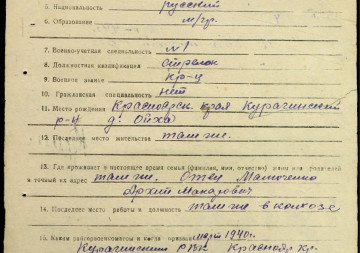 5. Национальность русский
6. Образование м/гр.
7. Военно-учетная специальность №1
8. Должностная квалификация стрелок
9. Военное звание кр-ц
10. Гражданская специальность нет
11. Место рождения Красноярск. края Курагинский
р-н д. Ойха
12. Последнее место жительства там же.
13. Где проживает в настоящее время семья (фамилия, имя, отчество) жены или родителей
и точный их адрес там же. Отец
Архип Макарович
14. Последнее место работы и должность там же в колхозе
15. Каким райгорвоенкоматом и когда призван март 1940 г.
Курагинским РВК Краснояр. кр.